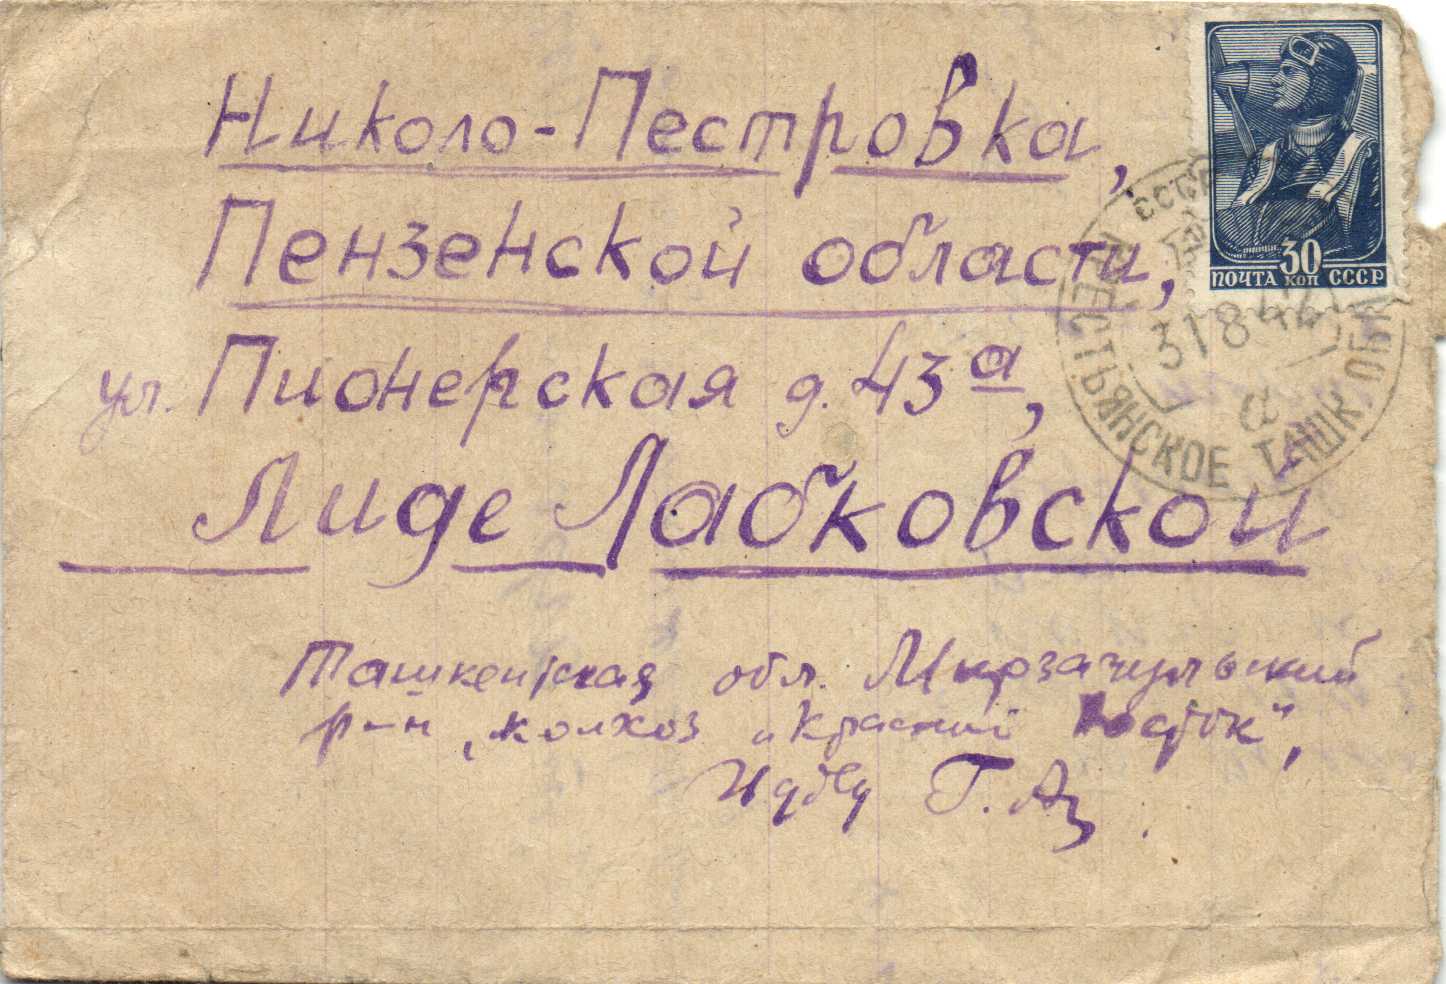 Николо-Пестровка,
Пензенской области,
ул. Пионерская д. 43а,
Лиде Лабковской
Ташкентская обл. Мирзачульский
р-н, колхоз "Красный Восток",
Г. А.
30
ПОЧТА КОП СССР
СССР
КРЕСТЬЯНСКОЕ ТАШК. ОБЛ.
31 8 44
а